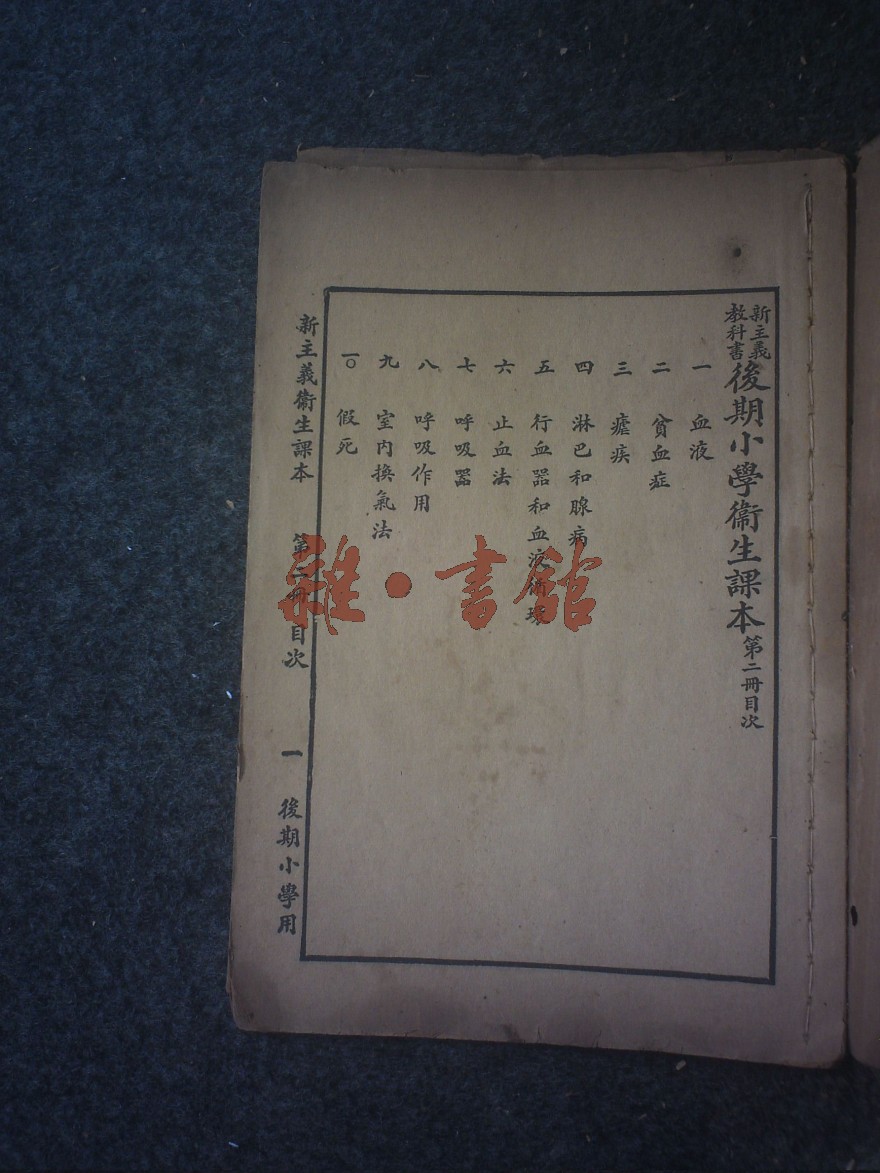 新主義教科書後期小學衞生課本第二冊目次
一 血液
二 貧血症
三 瘧疾
四 淋巴和腺病
五 行血器和血液循環
六 止血法
七 呼吸器
八 呼吸作用
九 室內換氣法
一〇 假死
新主義衞生課本 第二冊目次 一 後期小學用
雜·書館